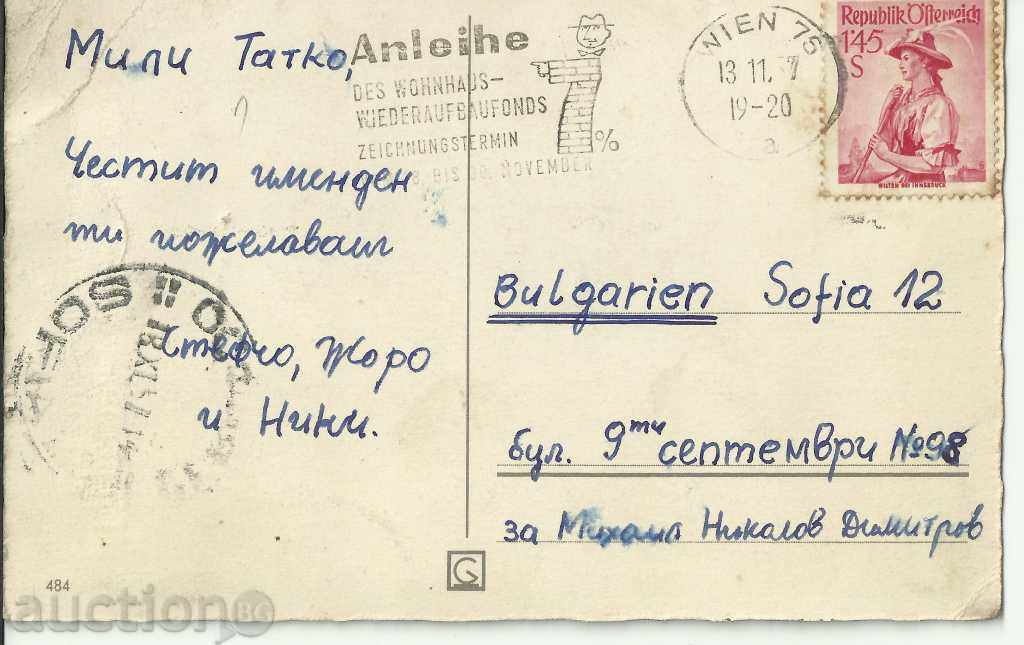 Мили Татко,
Честит именден
ти пожелават
Стефчо, Жоро
и Нини.
484
Anleihe
DES WOHNHAUS-
WIEDERAUFBAUFONDS
ZEICHNUNGSTERMIN
BIS 30. NOVEMBER
7%
WIEN 75
13 11. 57
19-20
a
Republik Österreich
1'45
S
WILTEN BEI INNSBRUCK
Bulgarien Sofia 12
бул. 9ти септември №98
за Михаил Николов Димитров
G
SOFIA
auctionBG